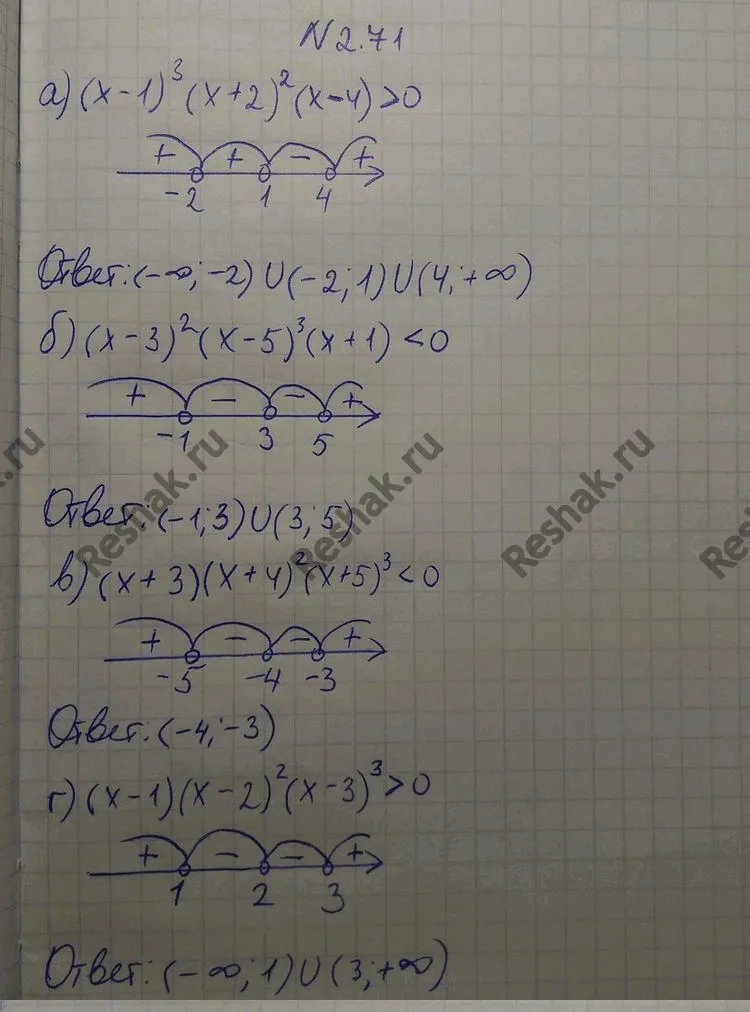 N 2.71
а) (x-1)³(x+2)²(x-4)>0
+ + - +
-2 1 4
Ответ: (-∞; -2) ∪ (-2; 1) ∪ (4; +∞)
б) (x-3)²(x-5)³(x+1)<0
+ - - +
-1 3 5
Ответ: (-1; 3) ∪ (3; 5)
в) (x+3)(x+4)²(x+5)³<0
+ - - +
-5 -4 -3
Ответ: (-4; -3)
г) (x-1)(x-2)²(x-3)³>0
+ - - +
1 2 3
Ответ: (-∞; 1) ∪ (3; +∞)
Reshak.ru
Reshak.ru
Reshak.ru